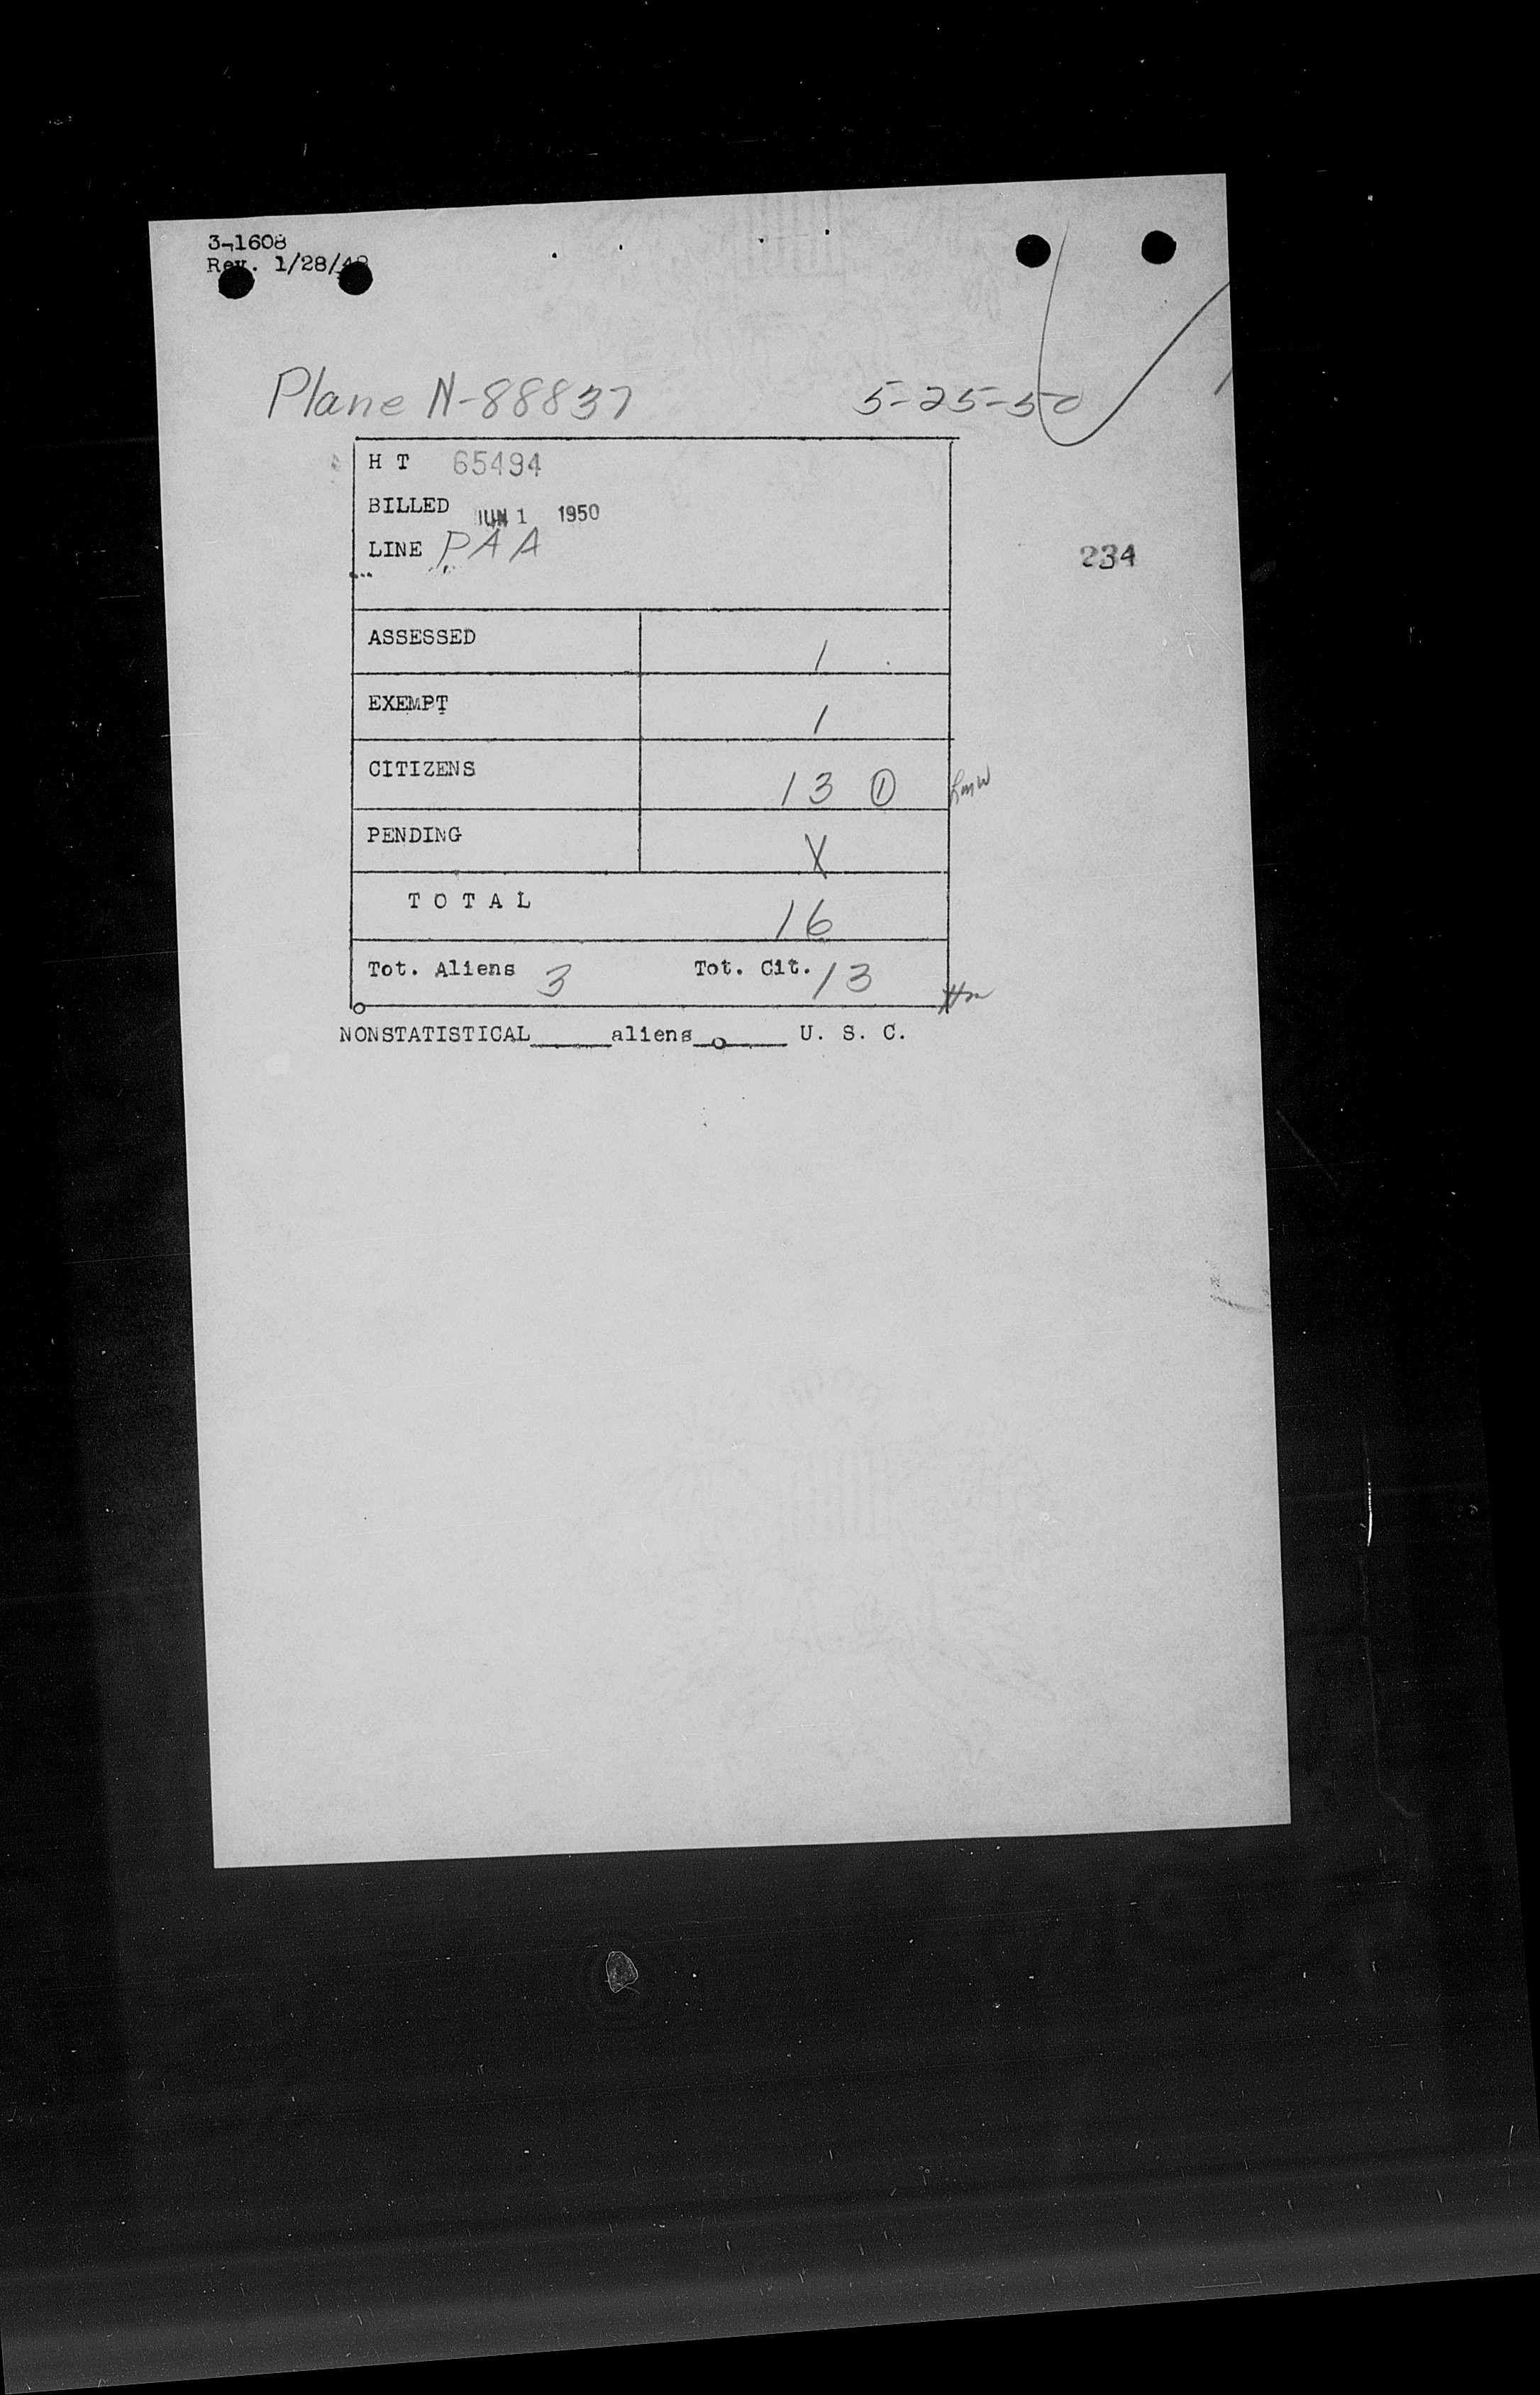 3-1608
Rev. 1/28/48
Plane N-88837 5-25-50
H T 65494
BILLED JUN 1 1950
LINE PAA
234
ASSESSED 1
EXEMPT 1
CITIZENS 13 ①
PENDING X
T O T A L 16
Tot. Aliens 3 Tot. Cit. 13
NONSTATISTICAL_____aliens__o____ U. S. C.